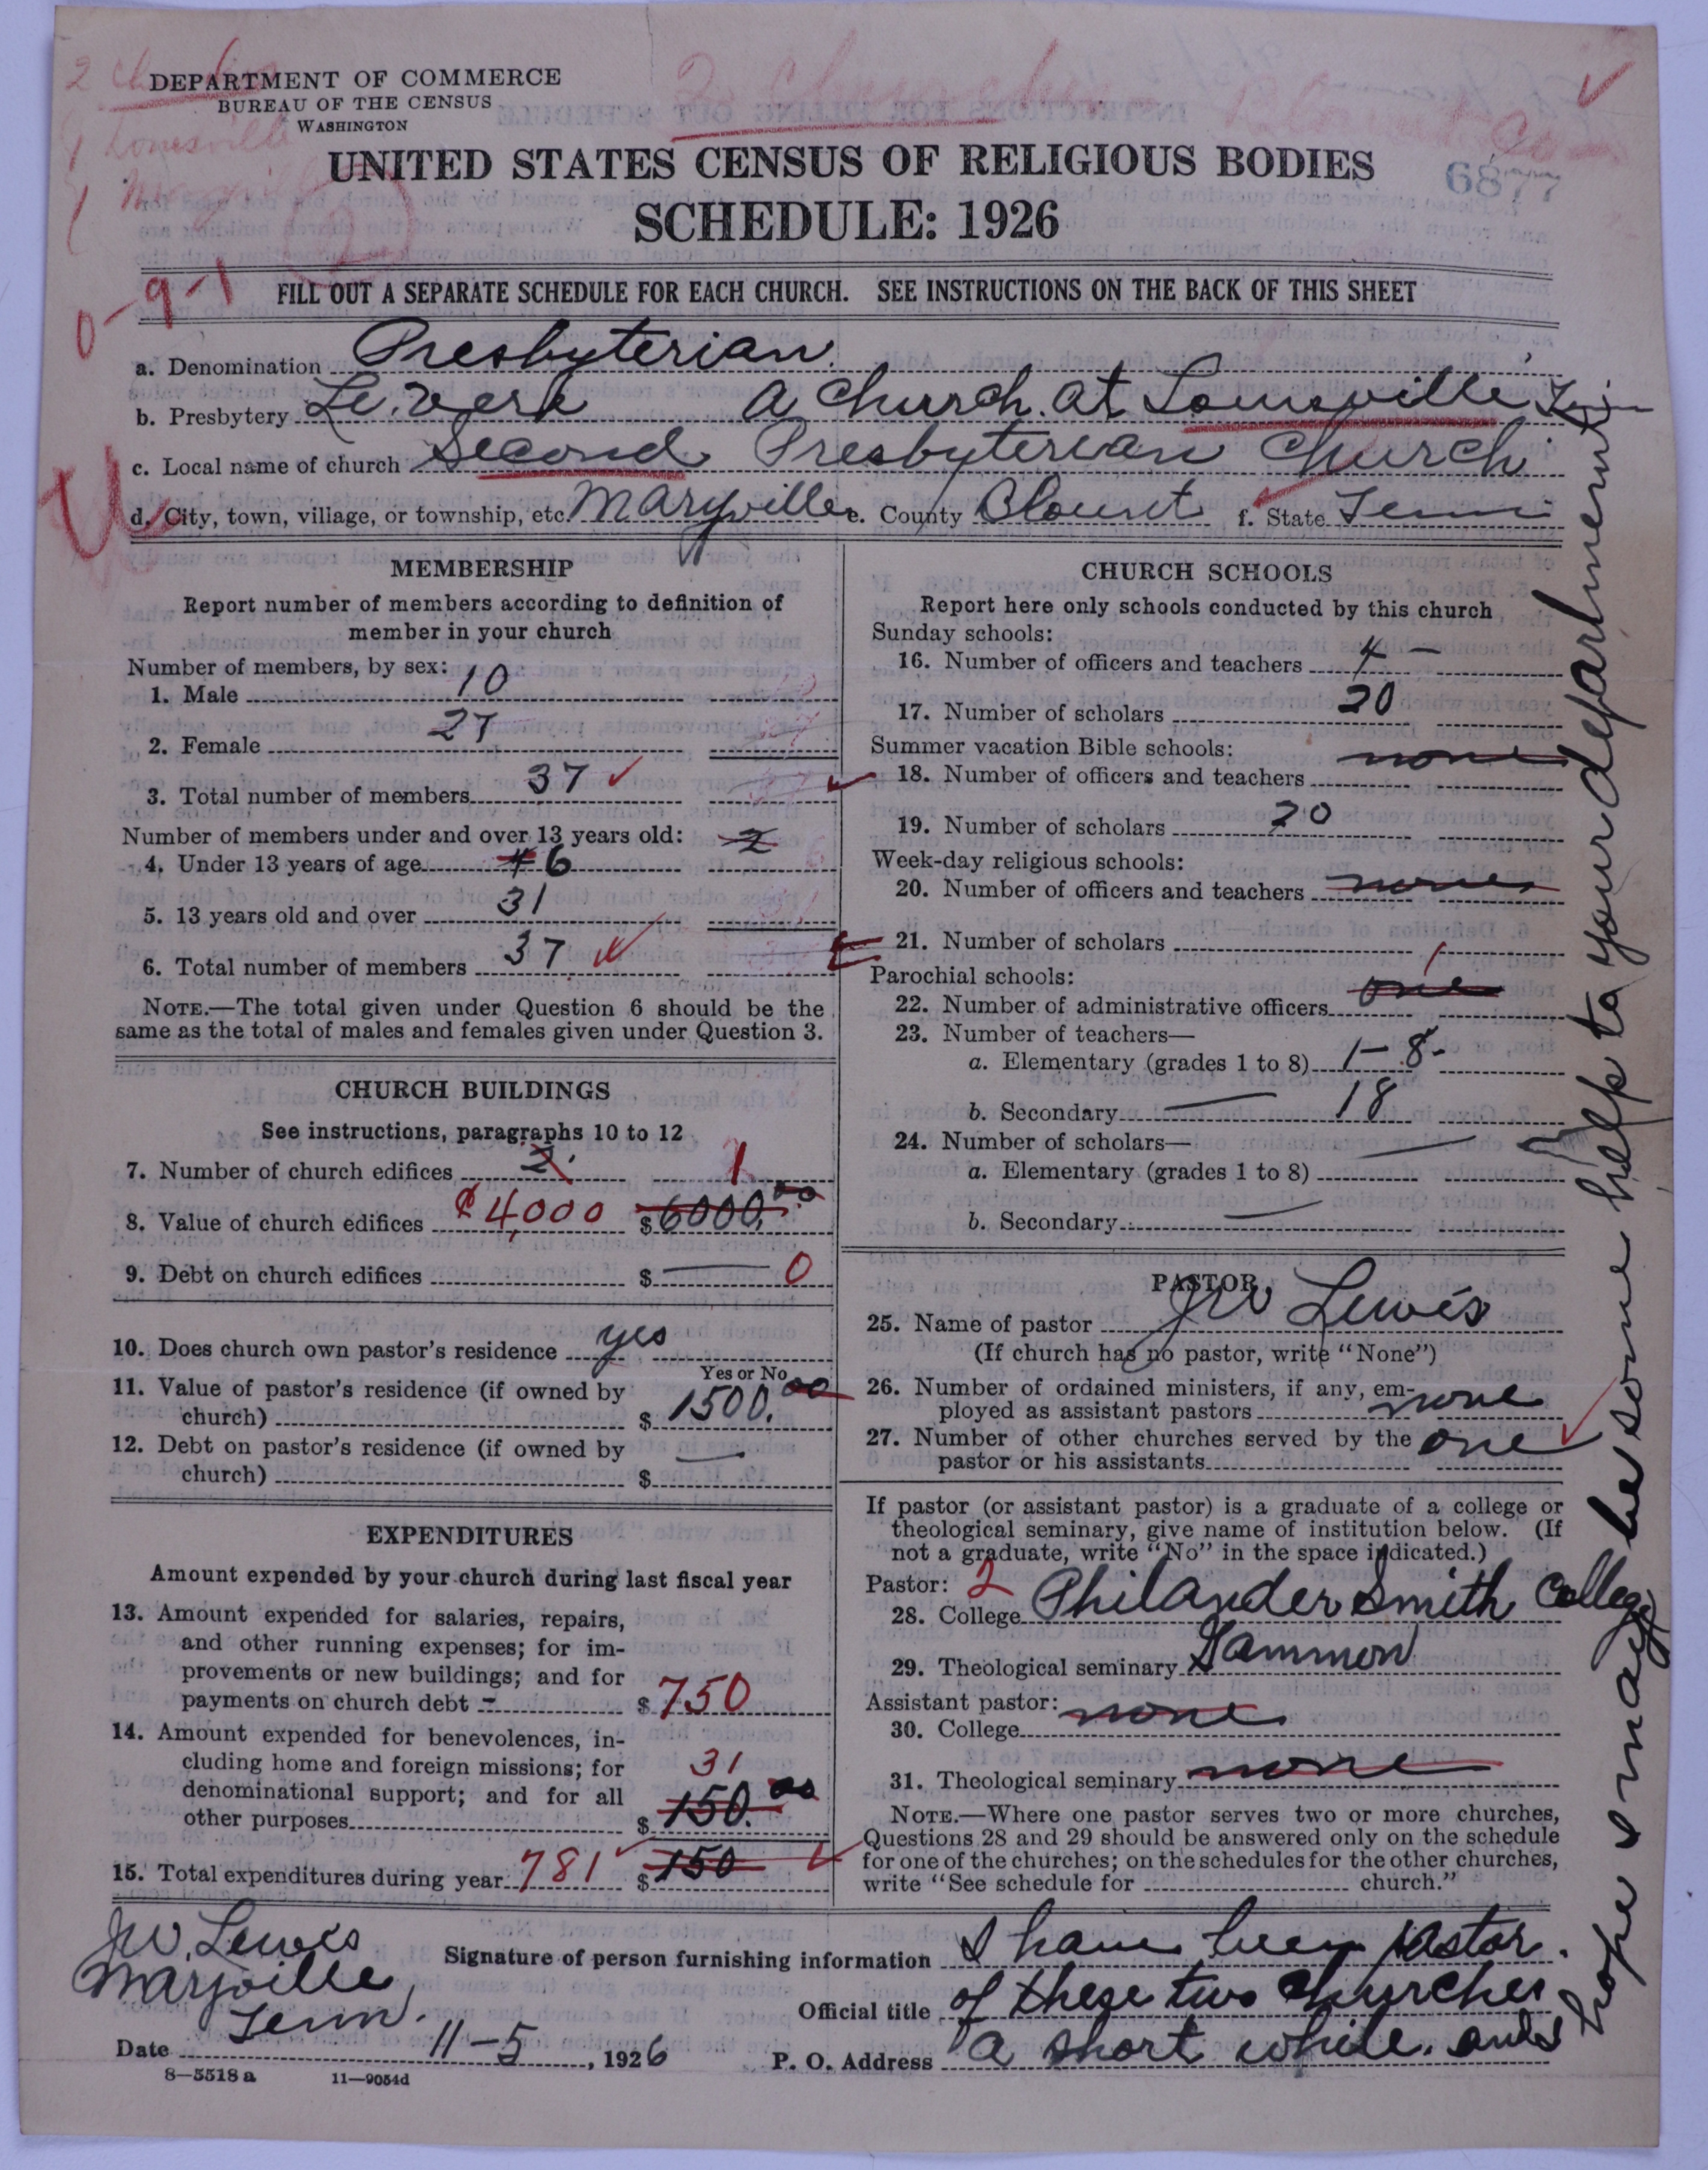 DEPARTMENT OF COMMERCE
BUREAU OF THE CENSUS
WASHINGTON
2 Churches Blount Co
Louisville
UNITED STATES CENSUS OF RELIGIOUS BODIES
6877
SCHEDULE: 1926
0-9-1
FILL OUT A SEPARATE SCHEDULE FOR EACH CHURCH. SEE INSTRUCTIONS ON THE BACK OF THIS SHEET
a. Denomination Presbyterian.
b. Presbytery Le.Vere a church. at Louisville, Tenn
c. Local name of church Second Presbyterian Church
d. City, town, village, or township, etc. Maryville e. County Blount f. State Tenn
MEMBERSHIP
Report number of members according to definition of
member in your church
Number of members, by sex:
1. Male 10
2. Female 27
3. Total number of members 37
Number of members under and over 13 years old: 2
4. Under 13 years of age 4 6
5. 13 years old and over 31
6. Total number of members 37
NOTE.—The total given under Question 6 should be the
same as the total of males and females given under Question 3.
CHURCH BUILDINGS
See instructions, paragraphs 10 to 12
7. Number of church edifices 2. 1
8. Value of church edifices $4,000 $6000.00
9. Debt on church edifices $ — 0
10. Does church own pastor's residence yes
Yes or No
11. Value of pastor's residence (if owned by
church) $ 1500.00
12. Debt on pastor's residence (if owned by
church) $ —
EXPENDITURES
Amount expended by your church during last fiscal year
13. Amount expended for salaries, repairs,
and other running expenses; for im-
provements or new buildings; and for
payments on church debt - $ 750
14. Amount expended for benevolences, in-
cluding home and foreign missions; for
denominational support; and for all
other purposes $ 31 150.00
15. Total expenditures during year 781 $ 150
CHURCH SCHOOLS
Report here only schools conducted by this church
Sunday schools:
16. Number of officers and teachers 4 —
17. Number of scholars 20
Summer vacation Bible schools:
18. Number of officers and teachers none
19. Number of scholars 20
Week-day religious schools:
20. Number of officers and teachers none
21. Number of scholars
Parochial schools:
22. Number of administrative officers one 1
23. Number of teachers—
a. Elementary (grades 1 to 8) 1-8-
b. Secondary — 18
24. Number of scholars—
a. Elementary (grades 1 to 8) —
b. Secondary —
PASTOR
25. Name of pastor JW Lewis
(If church has no pastor, write "None")
26. Number of ordained ministers, if any, em-
ployed as assistant pastors none
27. Number of other churches served by the
pastor or his assistants one
If pastor (or assistant pastor) is a graduate of a college or
theological seminary, give name of institution below. (If
not a graduate, write "No" in the space indicated.)
Pastor: 2
28. College Philander Smith College
29. Theological seminary Gammon
Assistant pastor:
30. College none
31. Theological seminary none
NOTE.—Where one pastor serves two or more churches,
Questions 28 and 29 should be answered only on the schedule
for one of the churches; on the schedules for the other churches,
write "See schedule for church."
JW. Lewis
Maryville,
Tenn.
Signature of person furnishing information I have been pastor.
Official title of these two churches
P. O. Address a short while. and I
hope I may be some help to your department.
Date 11-5, 1926
8—5518 a 11—9054d